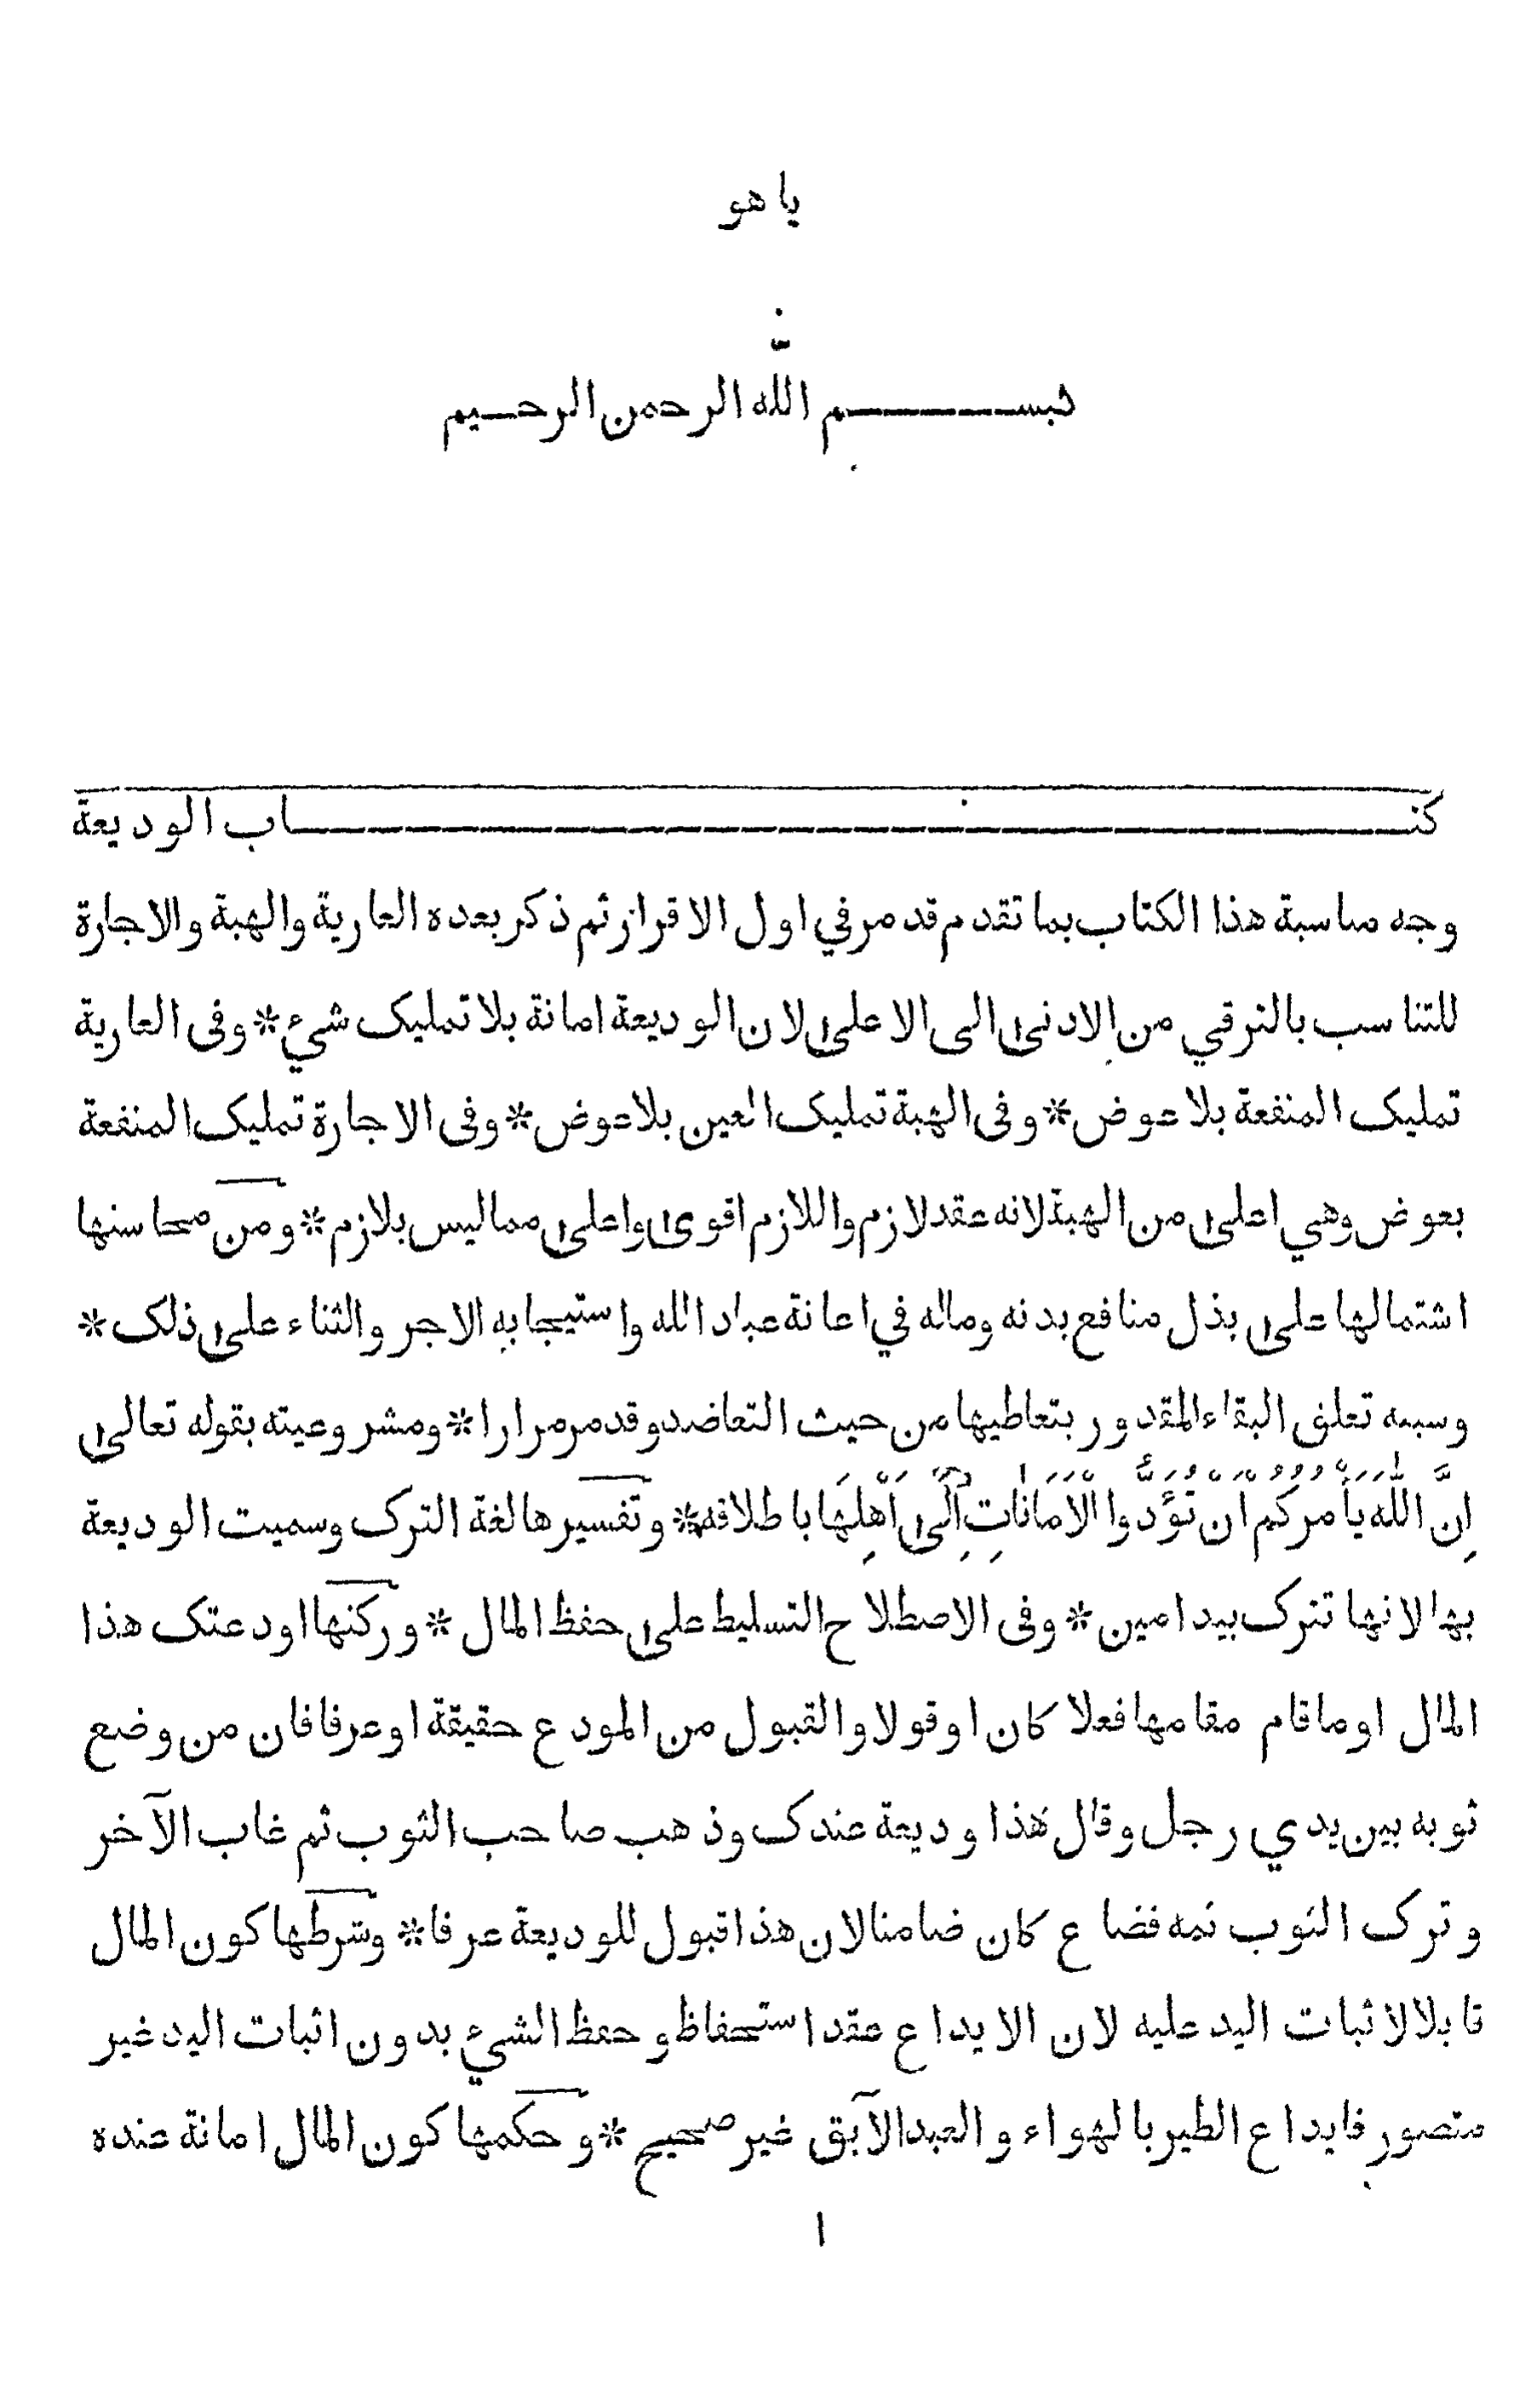 يا هو
بسم الله الرحمن الرحيم
كتاب الوديعة
وجه مناسبة هذا الكتاب بما تقدم قد مر في اول الاقرار ثم ذكر بعده العارية والهبة والاجارة
للتناسب بالترقي من الادنى الى الاعلى لان الوديعة امانة بلا تمليک شيء * وفى العارية
تمليک المنفعة بلا عوض * وفى الهبة تمليک العين بلا عوض * وفى الاجارة تمليک المنفعة
بعوض وهي اعلى من الهبة لانه عقد لازم واللازم اقوى واعلى مما ليس بلازم * ومن محاسنها
اشتمالها على بذل منافع بدنه وماله في اعانة عباد الله واستيجابه الاجر والثناء على ذلک *
وسببه تعلق البقاء المقدور بتعاطيها من حيث التعاضد وقد مر مرارا * ومشروعيته بقوله تعالى
اِنَّ اللّٰهَ يَأْمُرُكُمْ اَنْ تُؤَدُّوا الْاَمَانَاتِ اِلٰى اَهْلِهَا باطلاقه * وتفسيرها لغة الترک وسميت الوديعة
بها لانها تترک بيد امين * وفى الاصطلاح التسليط على حفظ المال * وركنها اودعتک هذا
المال او ما قام مقامها فعلا كان او قولا والقبول من المودع حقيقة او عرفا فان من وضع
ثوبه بين يدي رجل وقال هذا وديعة عندک وذهب صاحب الثوب ثم غاب الآخر
وترک الثوب ثمه فضاع كان ضامنا لان هذا قبول للوديعة عرفا * وشرطها كون المال
قابلا لاثبات اليد عليه لان الايداع عقد استحفاظ وحفظ الشيء بدون اثبات اليد غير
متصور فايداع الطير بالهواء والعبد الآبق غير صحيح * وحكمها كون المال امانة عنده
١